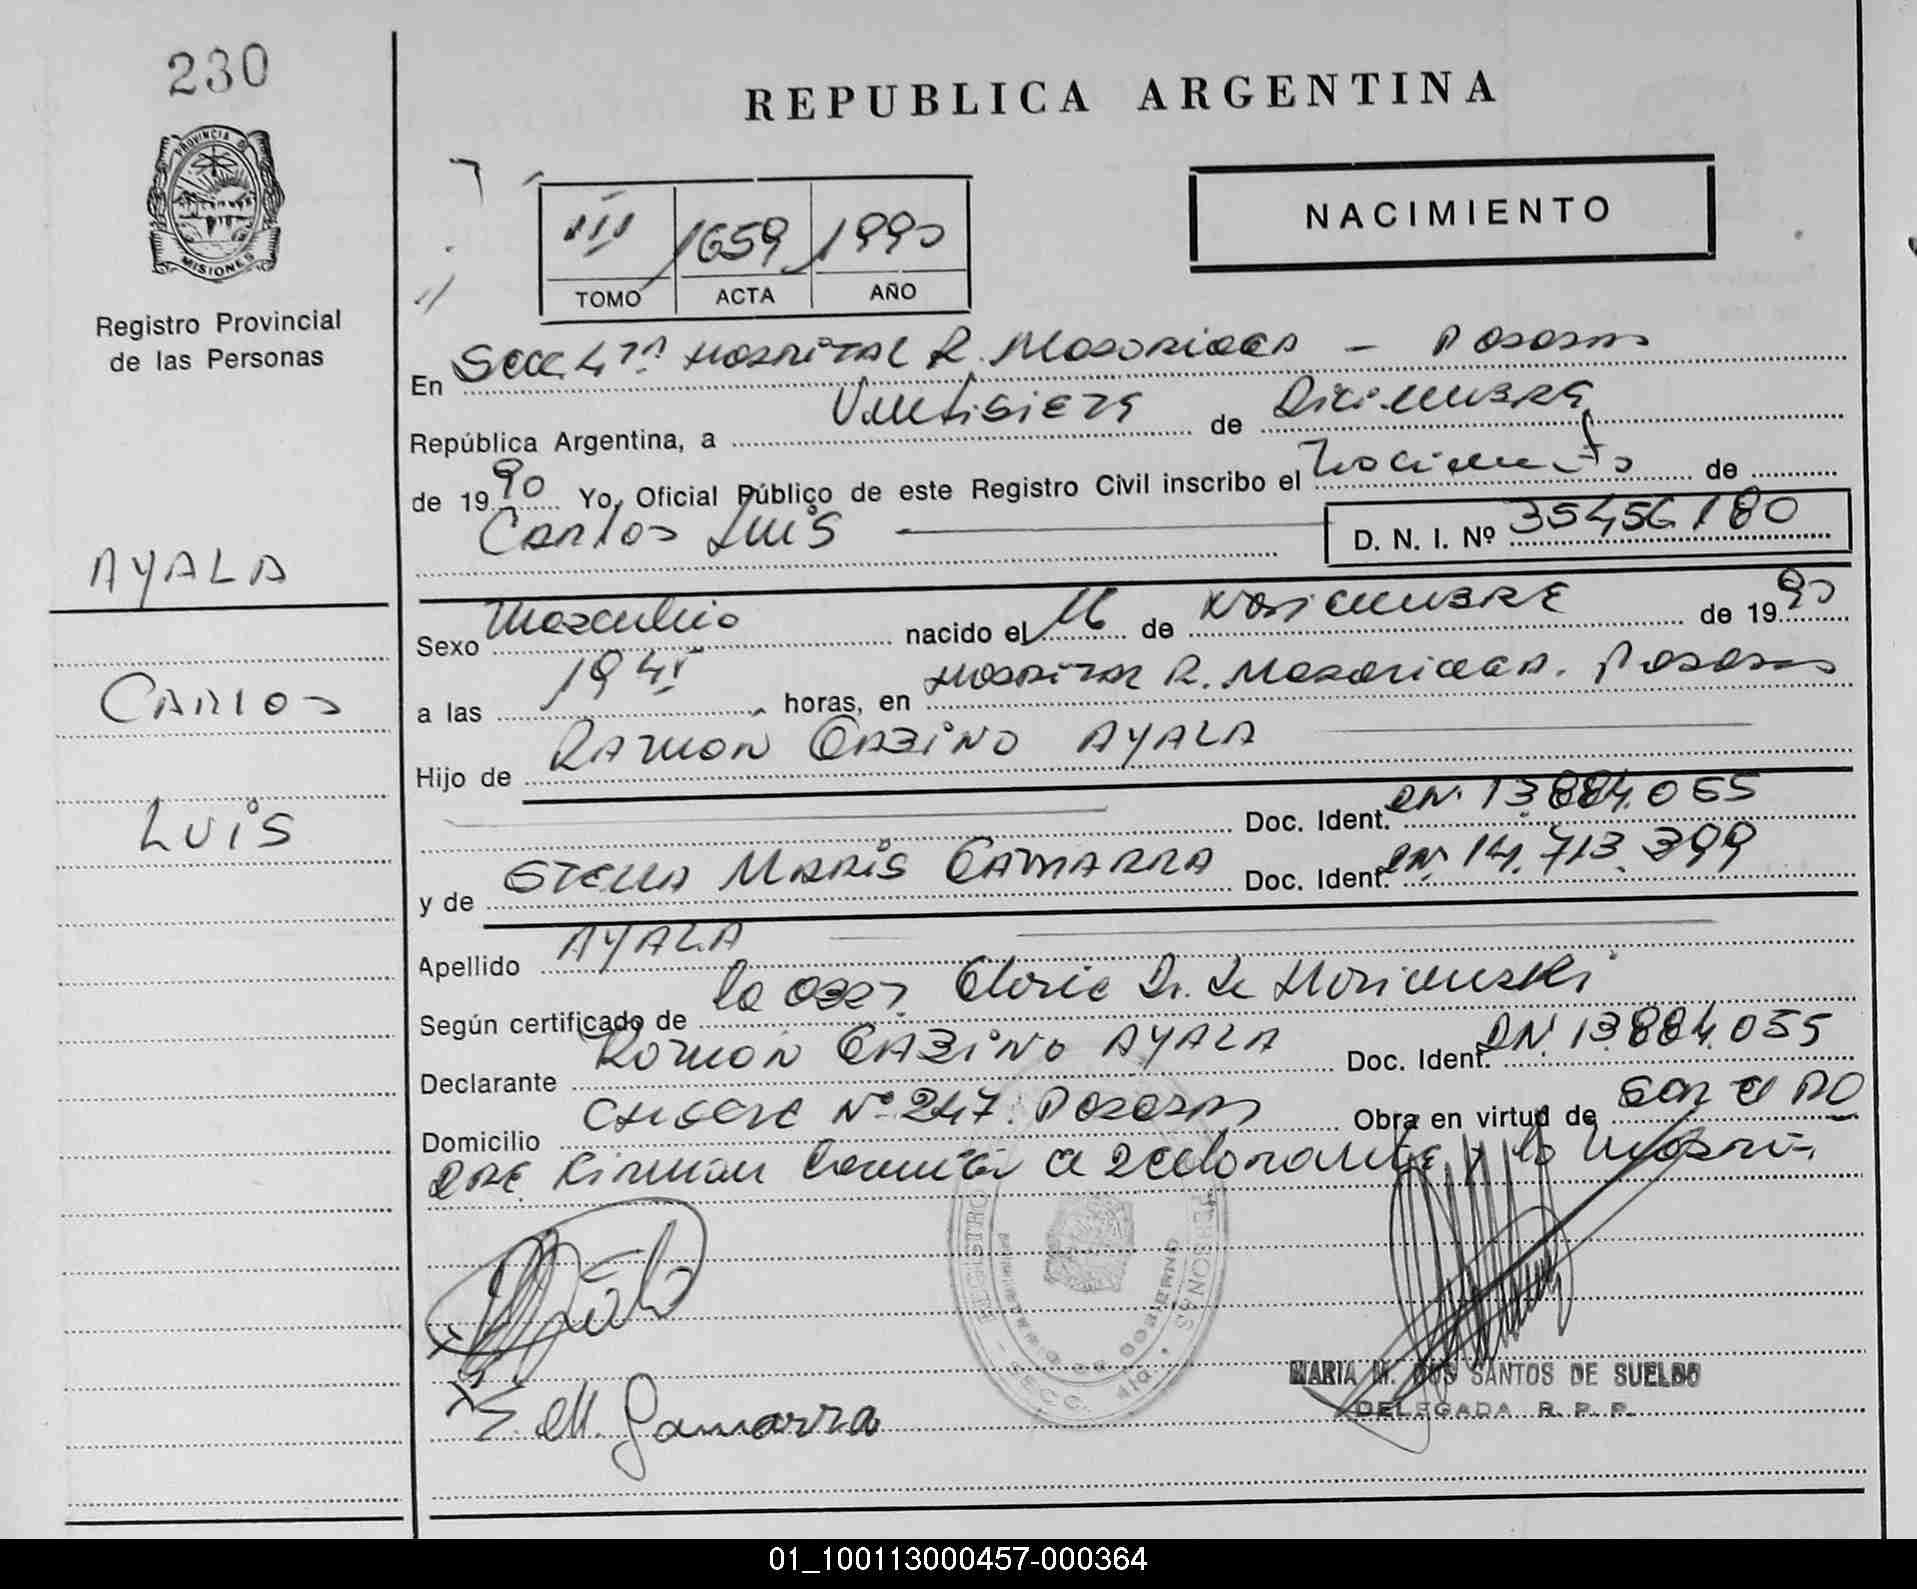 230
REPUBLICA ARGENTINA
PROVINCIA D
MISIONES
Registro Provincial
de las Personas
NACIMIENTO
III 1659 1990
TOMO ACTA AÑO
En Secc. 4ta Hospital R. Madariaga - Posadas
República Argentina, a Veintisiete de Diciembre
de 1990 Yo, Oficial Público de este Registro Civil inscribo el Nacimiento de
Carlos Luis D. N. I. Nº 35456180
AYALA
CARLOS
LUIS
Sexo Masculino nacido el 16 de Noviembre de 1990
a las 19 horas, en Hospital R. Madariaga. Posadas
Hijo de RAMON GABINO AYALA
Doc. Ident. DN. 13.884.055
y de STELLA MARIS GAMARRA Doc. Ident. DN. 14.713.399
Apellido AYALA
Según certificado de la Obst. Gloria D. de
Declarante RAMON GABINO AYALA Doc. Ident. DN. 13.884.055
Domicilio Nº 247. Posadas Obra en virtud de ser el PA
DRE. Firman el declarante y la
REGISTRO PERSONAS
MINISTERIO DE GOBIERNO
SECC. 4ta.
S. M. Gamarra
MARIA M. DOS SANTOS DE SUELDO
DELEGADA R. P. P.
01_100113000457-000364